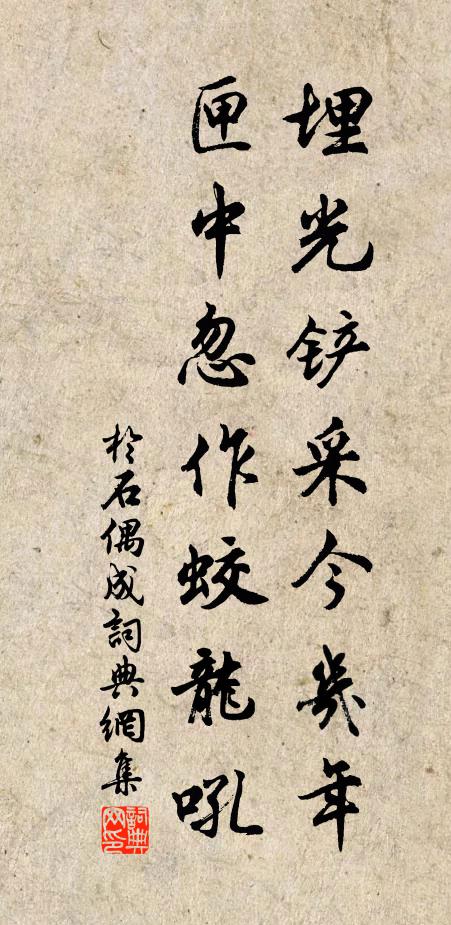 埋光铲采今幾年
匣中忽作蛟龍吼
於石偶成詞典網集
詞典網印